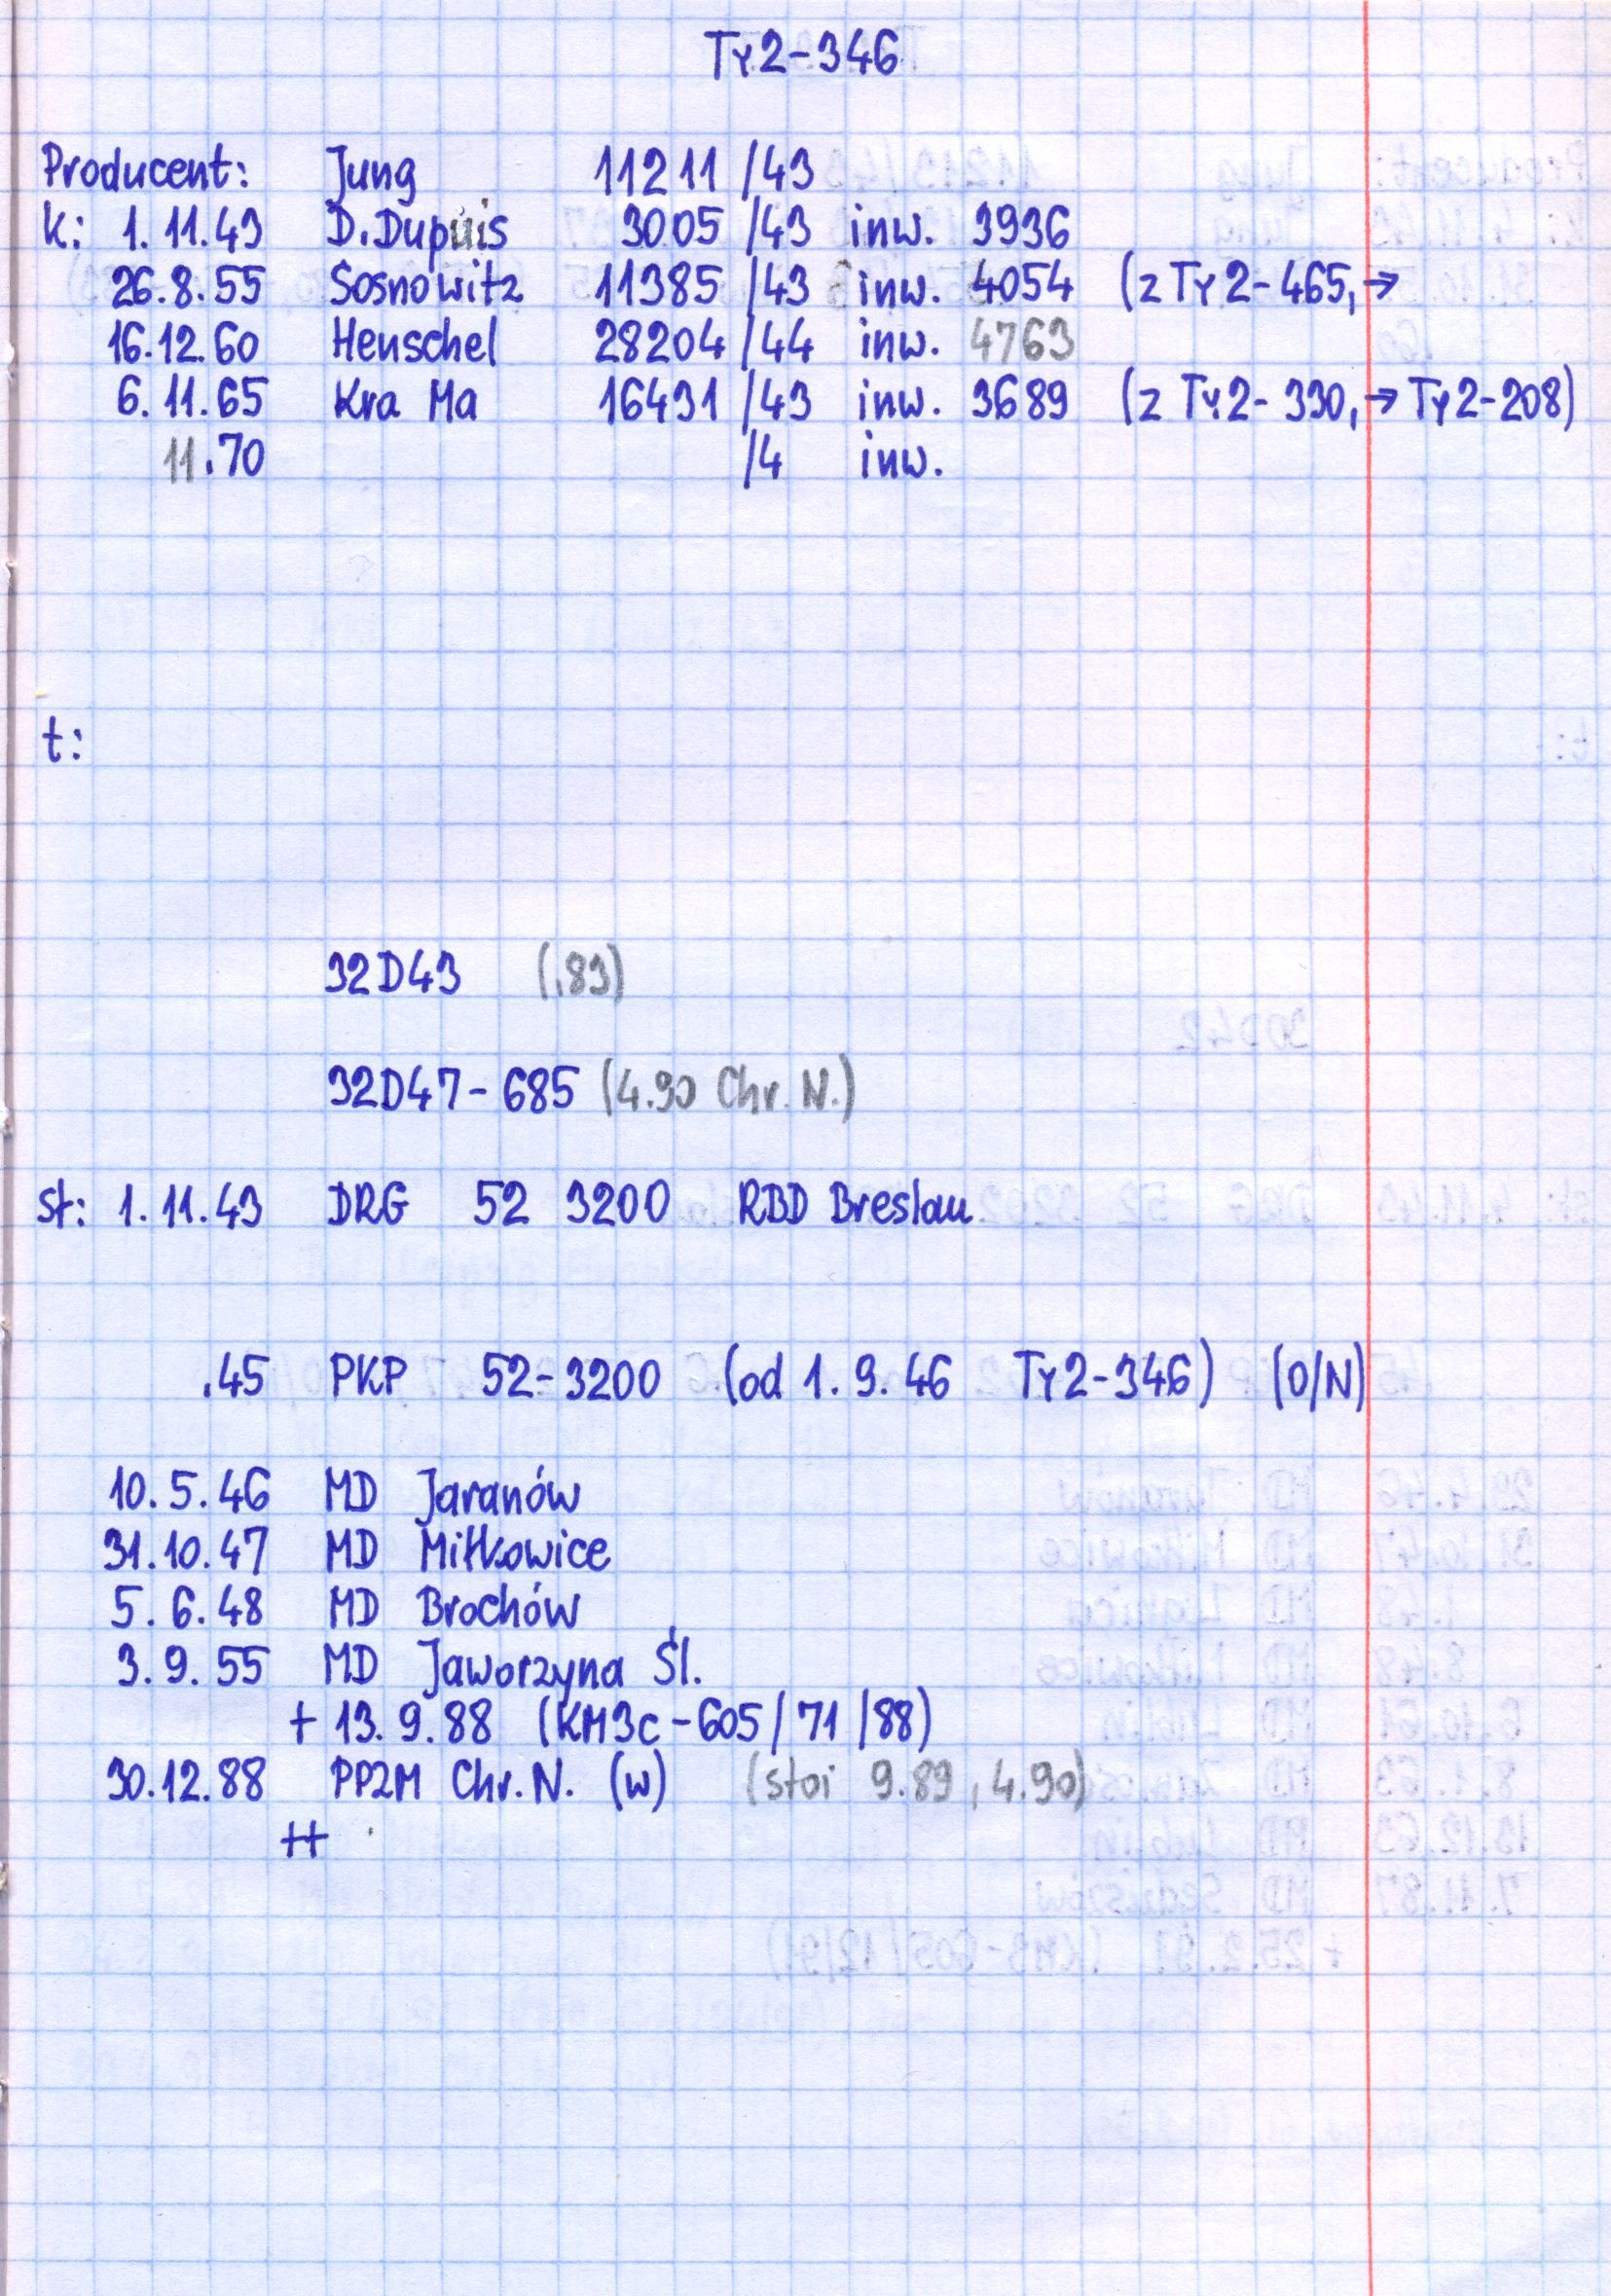 Ty2-346
Producent: Jung 11211 /43
k: 1.11.43 D.Dupuis 3005 /43 inw. 3936
26.8.55 Sosnowitz 11385 /43 inw. 4054 (z Ty2-465, →
16.12.60 Henschel 28204 /44 inw. 4763
6.11.65 Kra Ma 16431 /43 inw. 3689 (z Ty2-330, → Ty2-208)
11.70 /4 inw.
t:
32D43 (.83)
32D47-685 (4.90 Chr. N.)
st: 1.11.43 DRG 52 3200 RBD Breslau
.45 PKP 52-3200 (od 1.9.46 Ty2-346) (O/N)
10.5.46 MD Jaranów
31.10.47 MD Miłkowice
5.6.48 MD Brochów
3.9.55 MD Jaworzyna Śl.
+ 13.9.88 (KM3c-605/71/88)
30.12.88 PP2M Chr.N. (w) (stoi 9.89, 4.90)
++